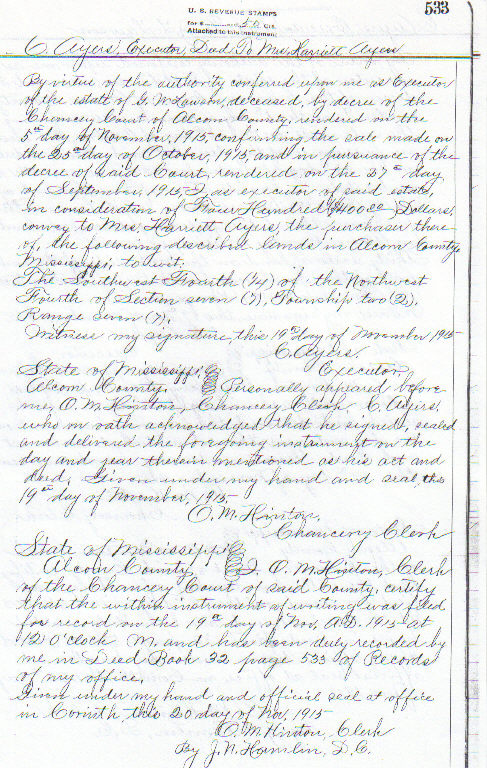 533
U. S. REVENUE STAMPS
for $ 50 Cts.
Attached to this instrument
C. Ayers, Executor, Deed To Mrs. Harriett Ayers
By virtue of the authority conferred upon me as Executor
of the estate of G. W. Lawson, deceased, by decree of the
Chancery Court of Alcorn County, rendered on the
5th day of November, 1915, confirming the sale made on
the 25th day of October, 1915, and in pursuance of the
decree of said Court, rendered on the 27th day
of September, 1915, I as executor of said estate,
in consideration of Four Hundred ($400.00) Dollars,
convey to Mrs. Harriett Ayers, the purchaser there-
of, the following describe lands in Alcorn County,
Mississippi, to wit:
The Southwest Fourth (1/4) of the Northwest
Fourth of Section seven (7), Township two (2),
Range seven (7).
Witness my signature, this 19th day of November 1915
C. Ayers.
Executor,
State of Mississippi,
Alcorn County. Personally appeared before
me, O. M. Hinton, Chancery Clerk C. Ayers,
who on oath acknowledged that he signed, sealed
and delivered the foregoing instrument on the
day and year therein mentioned as his act and
deed, Given under my hand and seal, this
19th day of November, 1915
O. M. Hinton,
Chancery Clerk
State of Mississippi
Alcorn County, I, O. M. Hinton, Clerk
of the Chancery Court of said County, certify
that the within instrument of writing was filed
for record on the 19th day of Nov, A.D. 1915 at
12 O'clock M. and has been duly recorded by
me in Deed Book 32 page 533 of Records
of my office.
Given under my hand and official seal at office
in Corinth this 20 day of Nov, 1915
O. M. Hinton, Clerk
By J. N. Hamlin, D. C.